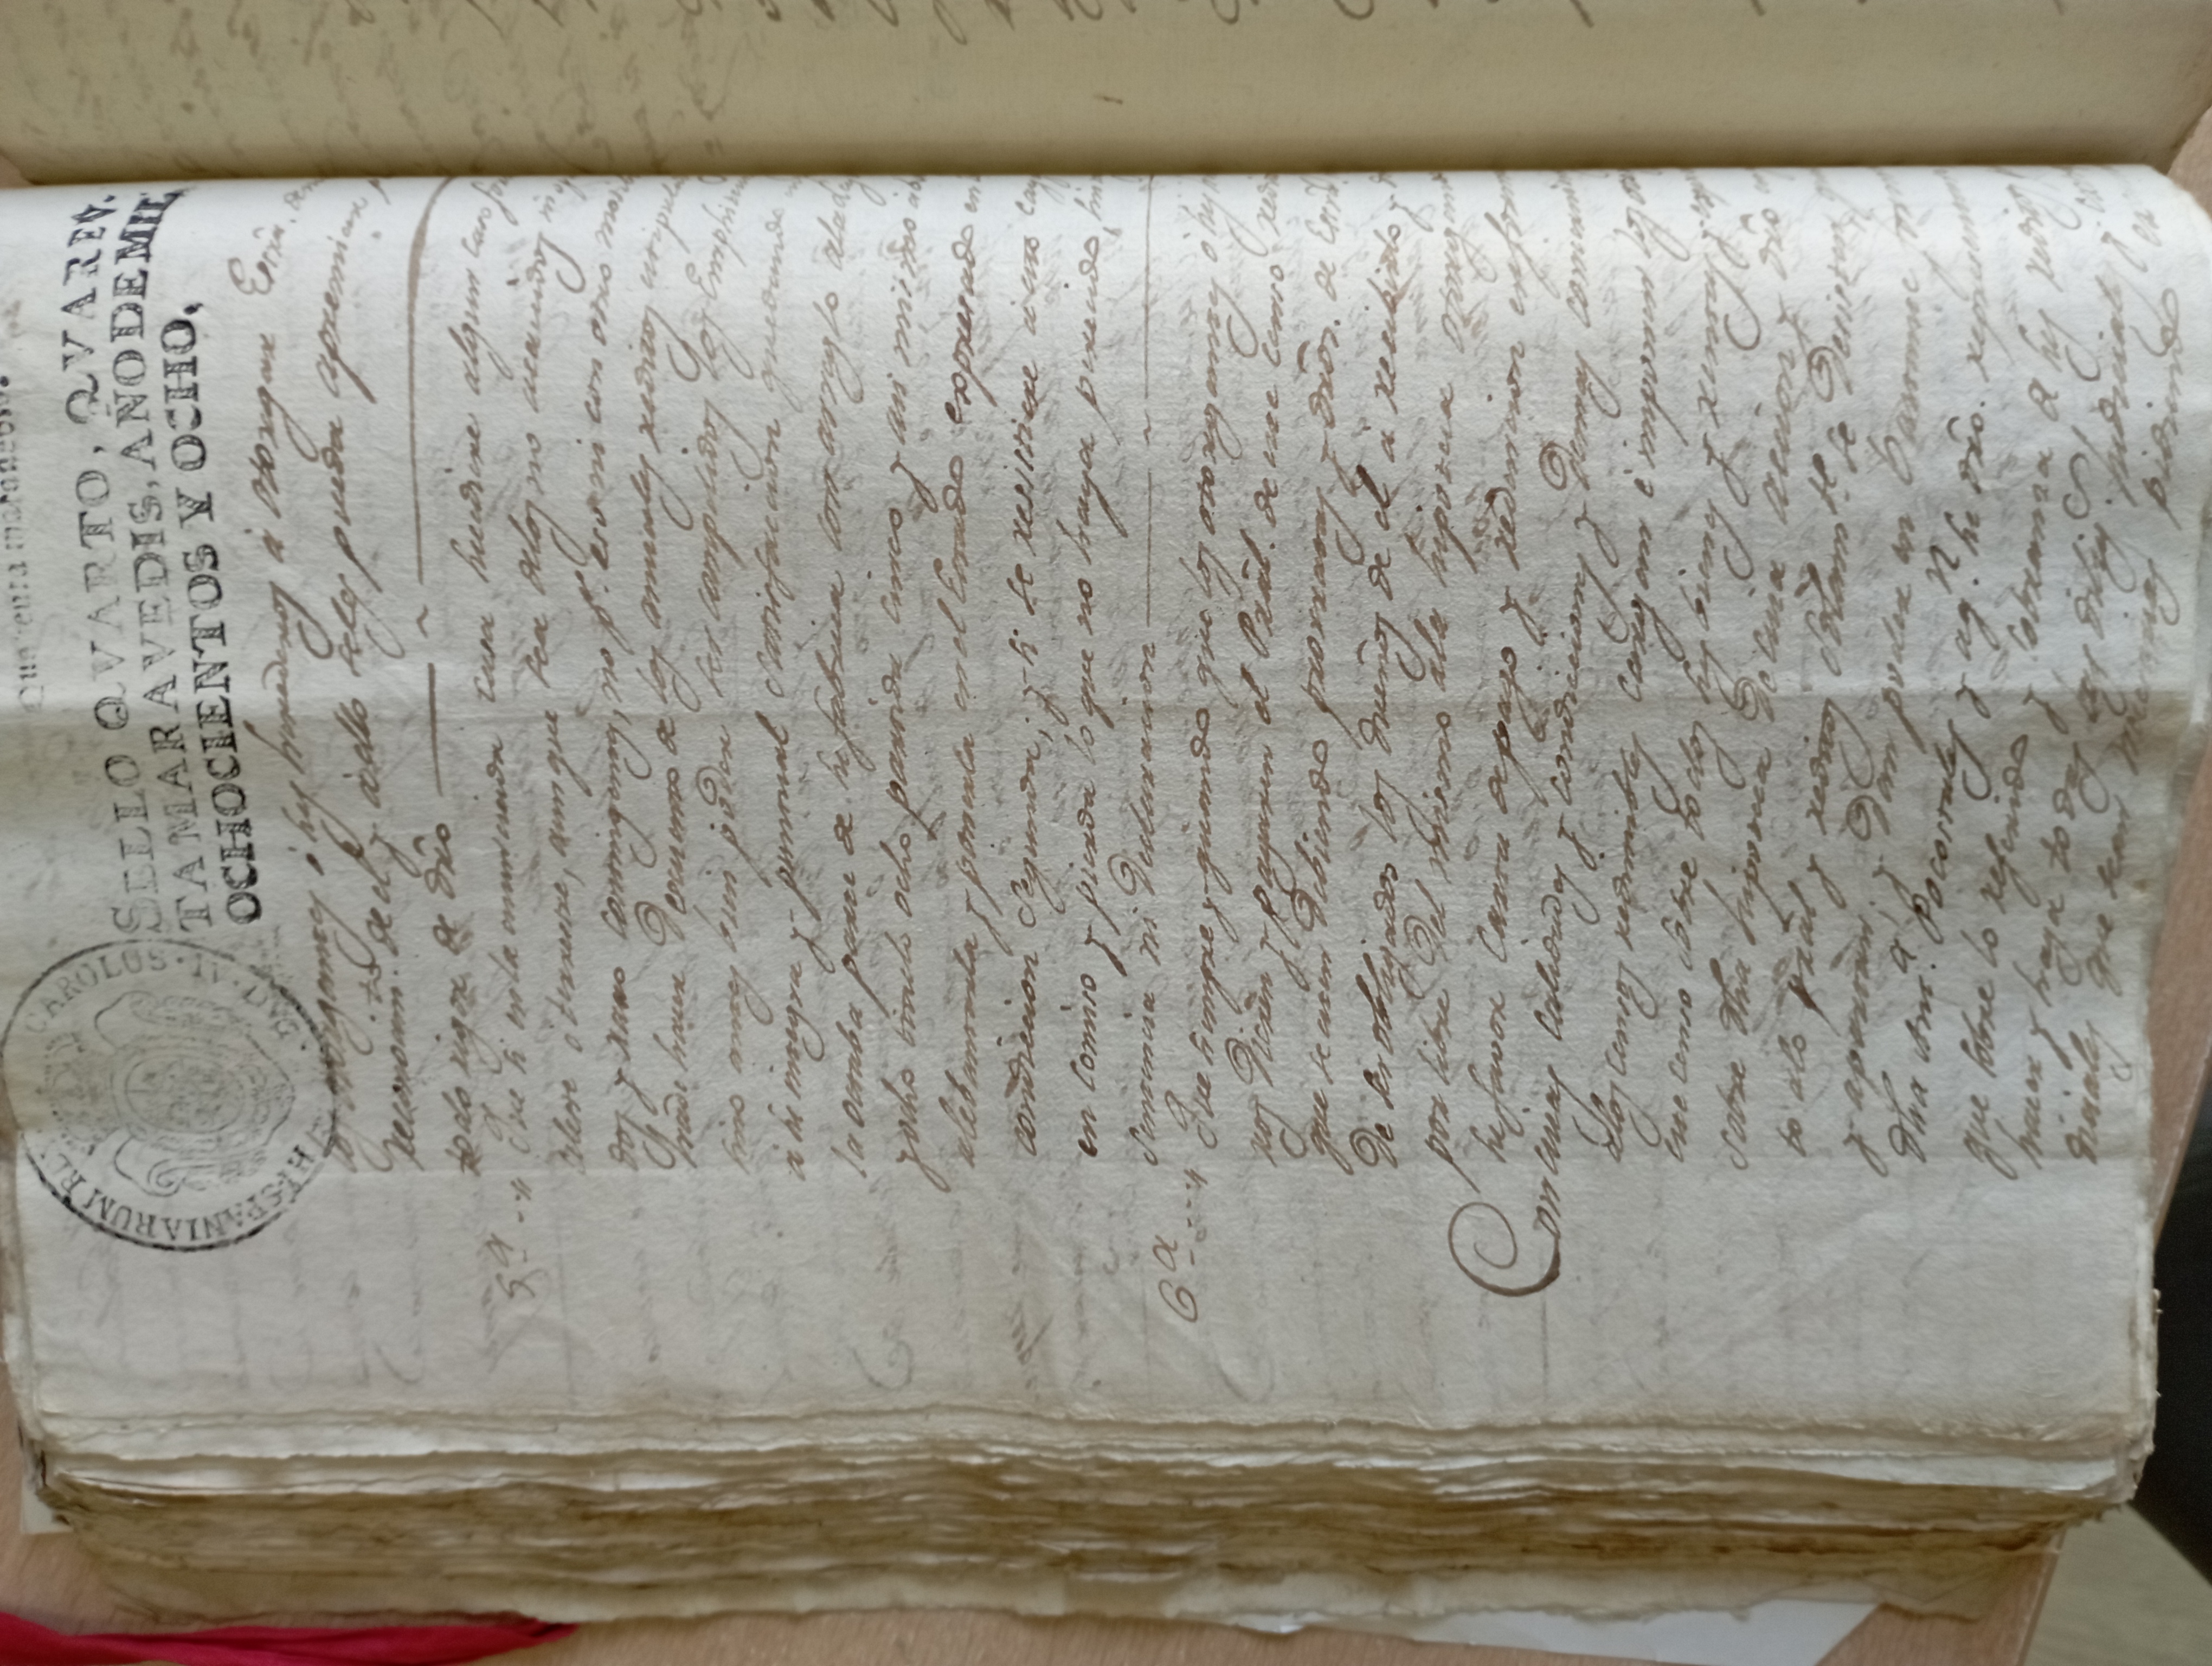 Quarenta maravedis.
HISPANIARUM REX CAROLUS IV D G
SELLO QVARTO, QVAREN.
TA MARAVEDIS, AÑO DE MIL
OCHOCIENTOS Y OCHO.
los otorgantes ó sus herederos á otorgar Escrã.
reconocim.to de el y à ello seles pueda apremiar
todo rigor de drõ
5.a Que si en la anunciada casa sucediere algun caso
celeste ó terrestre, aunque sea delos no acaecidos
dos y raro contingentes, no p.r eso ni con otro
hade hacer Descuento de los anuales reditos
sino antes bien poder ser compelidos los
á su integra y puntual Satisfaccion quedando
la octaba parte de su fabrica con arreglo ala
y ocho titulo ocho partida cinco y asi mismo
alebantarla y ponerla en el Estado expresado en
condicion Segunda; y si se resistiere á esto
en comiso y pierda lo que no haya perecido, sin
sentencia ni Declaracion
6.a Que siempre y quando que los otorgantes ó sus
ros Dieren y pagaren el Prãl. de este censo
que se esten Debiendo prorratas y drõs. de
De ser obligados los dueños de el á recibirlo y
por libre Del mismo ala hipoteca
su favor Carta de pago y redencion en
Con cuias calidades y condiciones y Demas
alos censos redimibles cargan é imponen los
este censo sobre todos sus bienes y rentas y
sobre dha hipoteca De cuia accion y drõ
to alo prãl y reditos Solam.te se Desisten
y apartan; y Dan poder en bastante
dha Ant.a Pocostales y aq.n su drõ.
que sobre lo referido y cobranza d sus reditos
hacer y haga todas las dilig.s Judiciales y
diciales que sean necesarias pidiendo